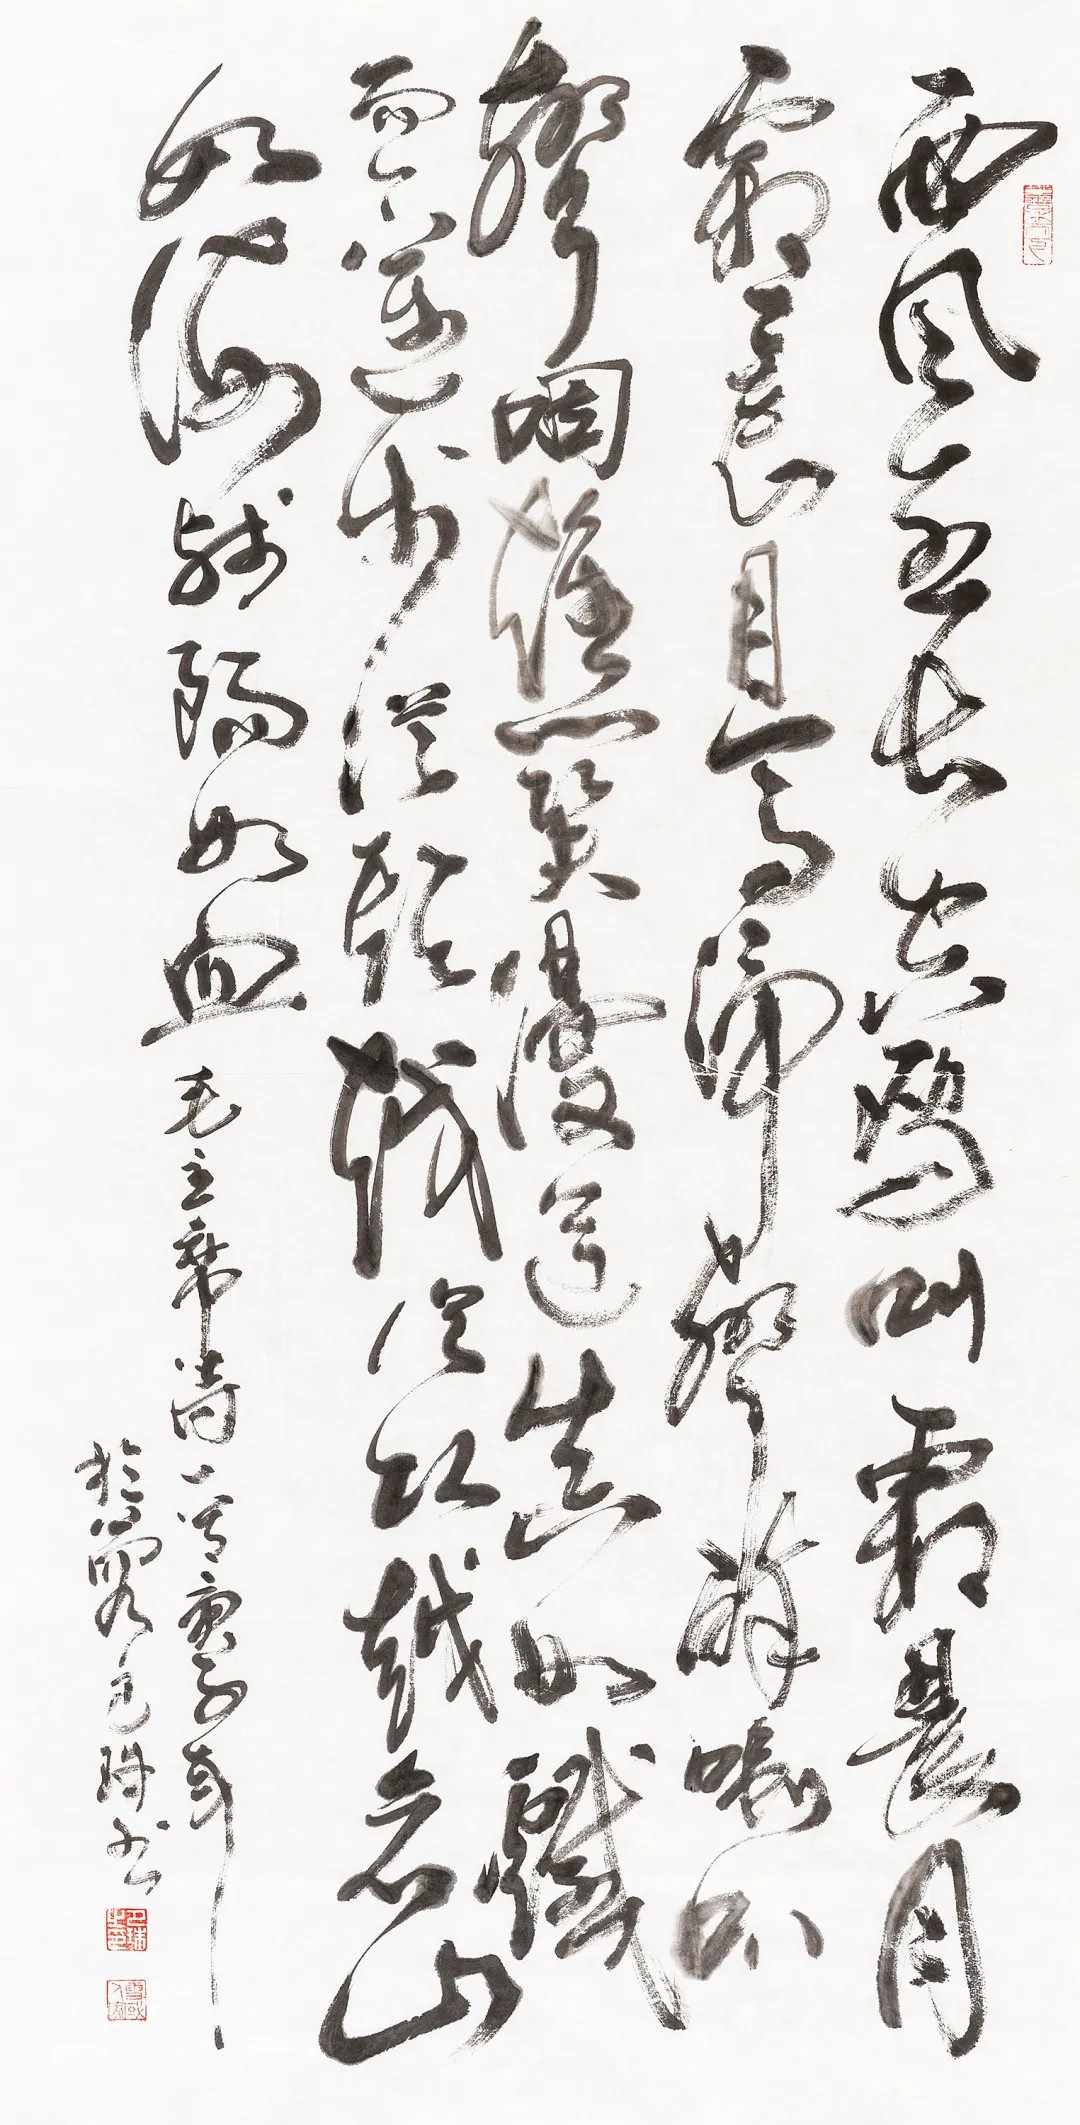 西風烈长空鴈叫霜晨月
霜晨月馬蹄聲碎喇叭
聲咽雄關漫道真如鐵
而今邁步從頭越從头越蒼山
如海殘陽如血 毛主席詩一首庚子年
於 巴珠书